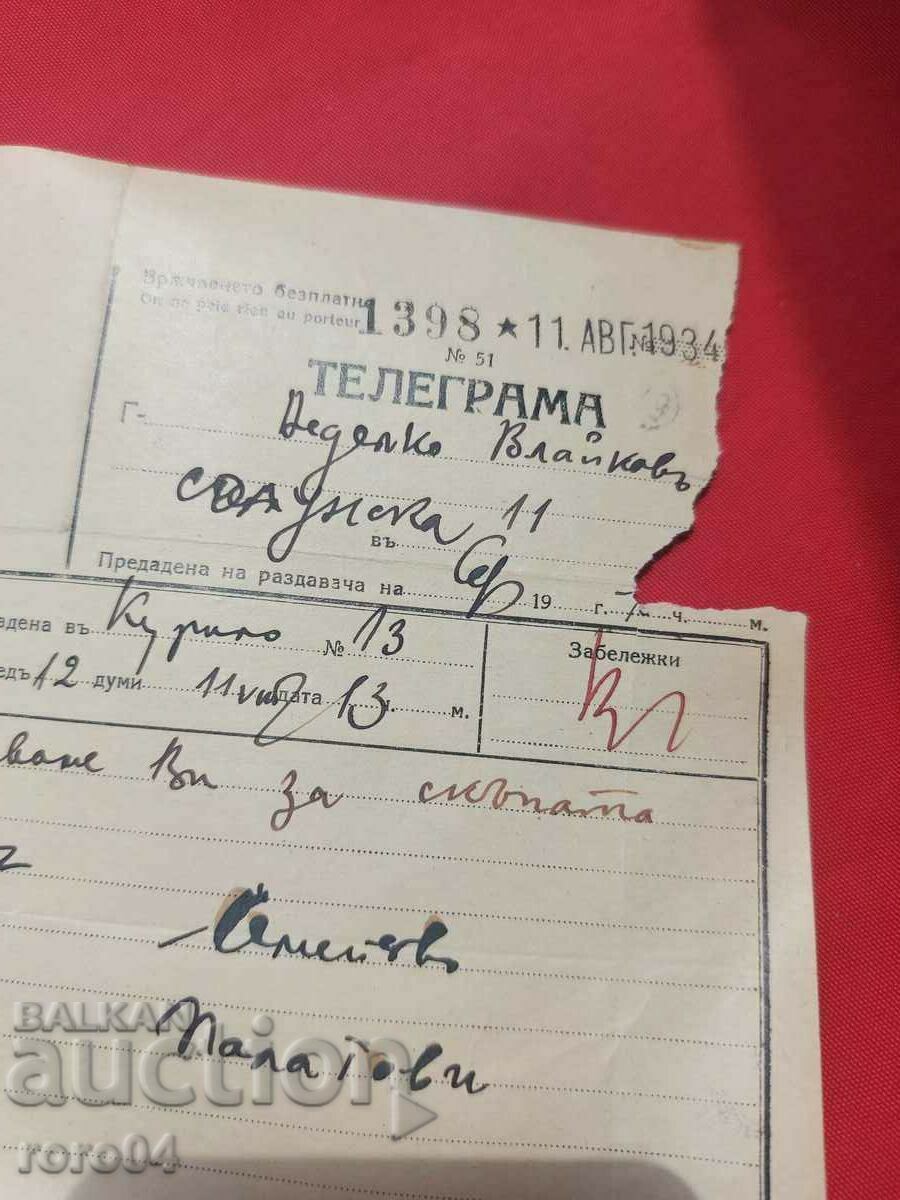 Връчването безплатно
On ne paie rien au porteur
1398 ★ 11. АВГ. 1934
№ 51
ТЕЛЕГРАМА
Г- Неделко Влайковъ
Солунска 11
въ
Предадена на раздавача на 19 г. ч. м.
адена въ Курило № 13
едъ 12 думи 11 VIII дата 13 ч. м.
Забележки
ваме Ви за скъпата
Семейство
Палатови
BALKAN
auction
roro04